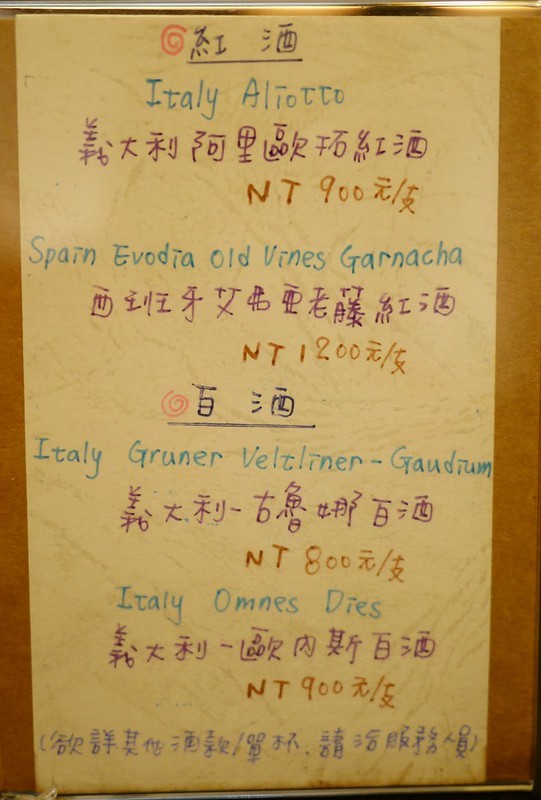 紅 酒
Italy Aliotto
義大利阿里歐拓紅酒
NT 900元/支
Spain Evodia old Vines Garnacha
西班牙艾弗亞老藤紅酒
NT 1200元/支
白 酒
Italy Gruner Veltliner - Gaudium
義大利-古魯娜白酒
NT 800元/支
Italy Omnes Dies
義大利-歐內斯白酒
NT 900元/支
(欲詳其他酒款/單杯,請洽服務人員)